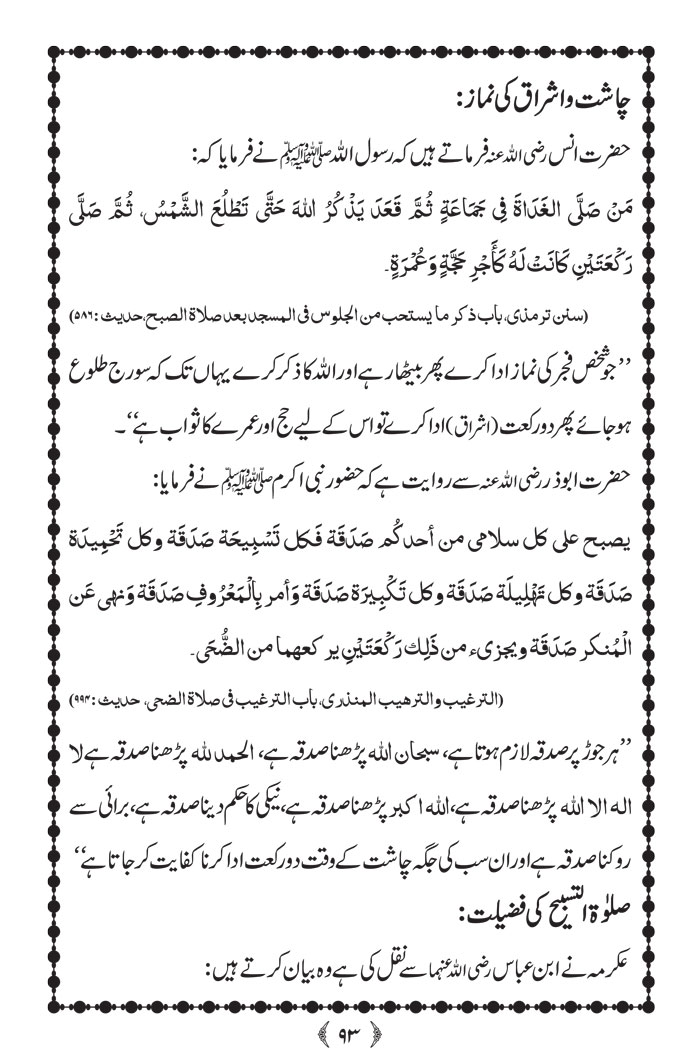 چاشت و اشراق کی نماز:
حضرت انس رضی اللہ عنہ فرماتے ہیں کہ رسول اللہ ﷺ نے فرمایا کہ:
مَنْ صَلَّى الغَدَاةَ فِي جَمَاعَةٍ ثُمَّ قَعَدَ يَذْكُرُ اللهَ حَتَّى تَطْلُعَ الشَّمْسُ، ثُمَّ صَلَّى
رَكْعَتَيْنِ كَانَتْ لَهُ كَأَجْرِ حَجَّةٍ وَعُمْرَةٍ۔
(سنن ترمذی، باب ذکر ما یستحب من الجلوس فی المسجد بعد صلاۃ الصبح، حدیث: ۵۸۶)
’’جو شخص فجر کی نماز ادا کرے پھر بیٹھا رہے اور اللہ کا ذکر کرے یہاں تک کہ سورج طلوع
ہو جائے پھر دو رکعت (اشراق) ادا کرے تو اس کے لیے حج اور عمرے کا ثواب ہے‘‘۔
حضرت ابوذر رضی اللہ عنہ سے روایت ہے کہ حضور نبی اکرم ﷺ نے فرمایا:
يصبح على كل سلامى من أحدكُم صَدَقَة فَكل تَسْبِيحَة صَدَقَة وكل تَحْمِيدَة
صَدَقَة وكل تَهْلِيلَة صَدَقَة وكل تَكْبِيرَة صَدَقَة وَأمر بِالْمَعْرُوفِ صَدَقَة وَنهى عَن
الْمُنكر صَدَقَة ويجزىء من ذَلِك رَكْعَتَيْنِ يركعهما من الضُّحَى۔
(الترغیب والترھیب المنذری، باب الترغیب فی صلاۃ الضحی، حدیث: ۹۹۴)
’’ہر جوڑ پر صدقہ لازم ہوتا ہے، سبحان اللہ پڑھنا صدقہ ہے، الحمد للہ پڑھنا صدقہ ہے لا
الہ الا اللہ پڑھنا صدقہ ہے، اللہ اکبر پڑھنا صدقہ ہے، نیکی کا حکم دینا صدقہ ہے، برائی سے
روکنا صدقہ ہے اور ان سب کی جگہ چاشت کے وقت دو رکعت ادا کرنا کفایت کر جاتا ہے‘‘
صلوٰۃ التسبیح کی فضیلت:
عکرمہ نے ابن عباس رضی اللہ عنہما سے نقل کی ہے وہ بیان کرتے ہیں:
﴿۹۳﴾